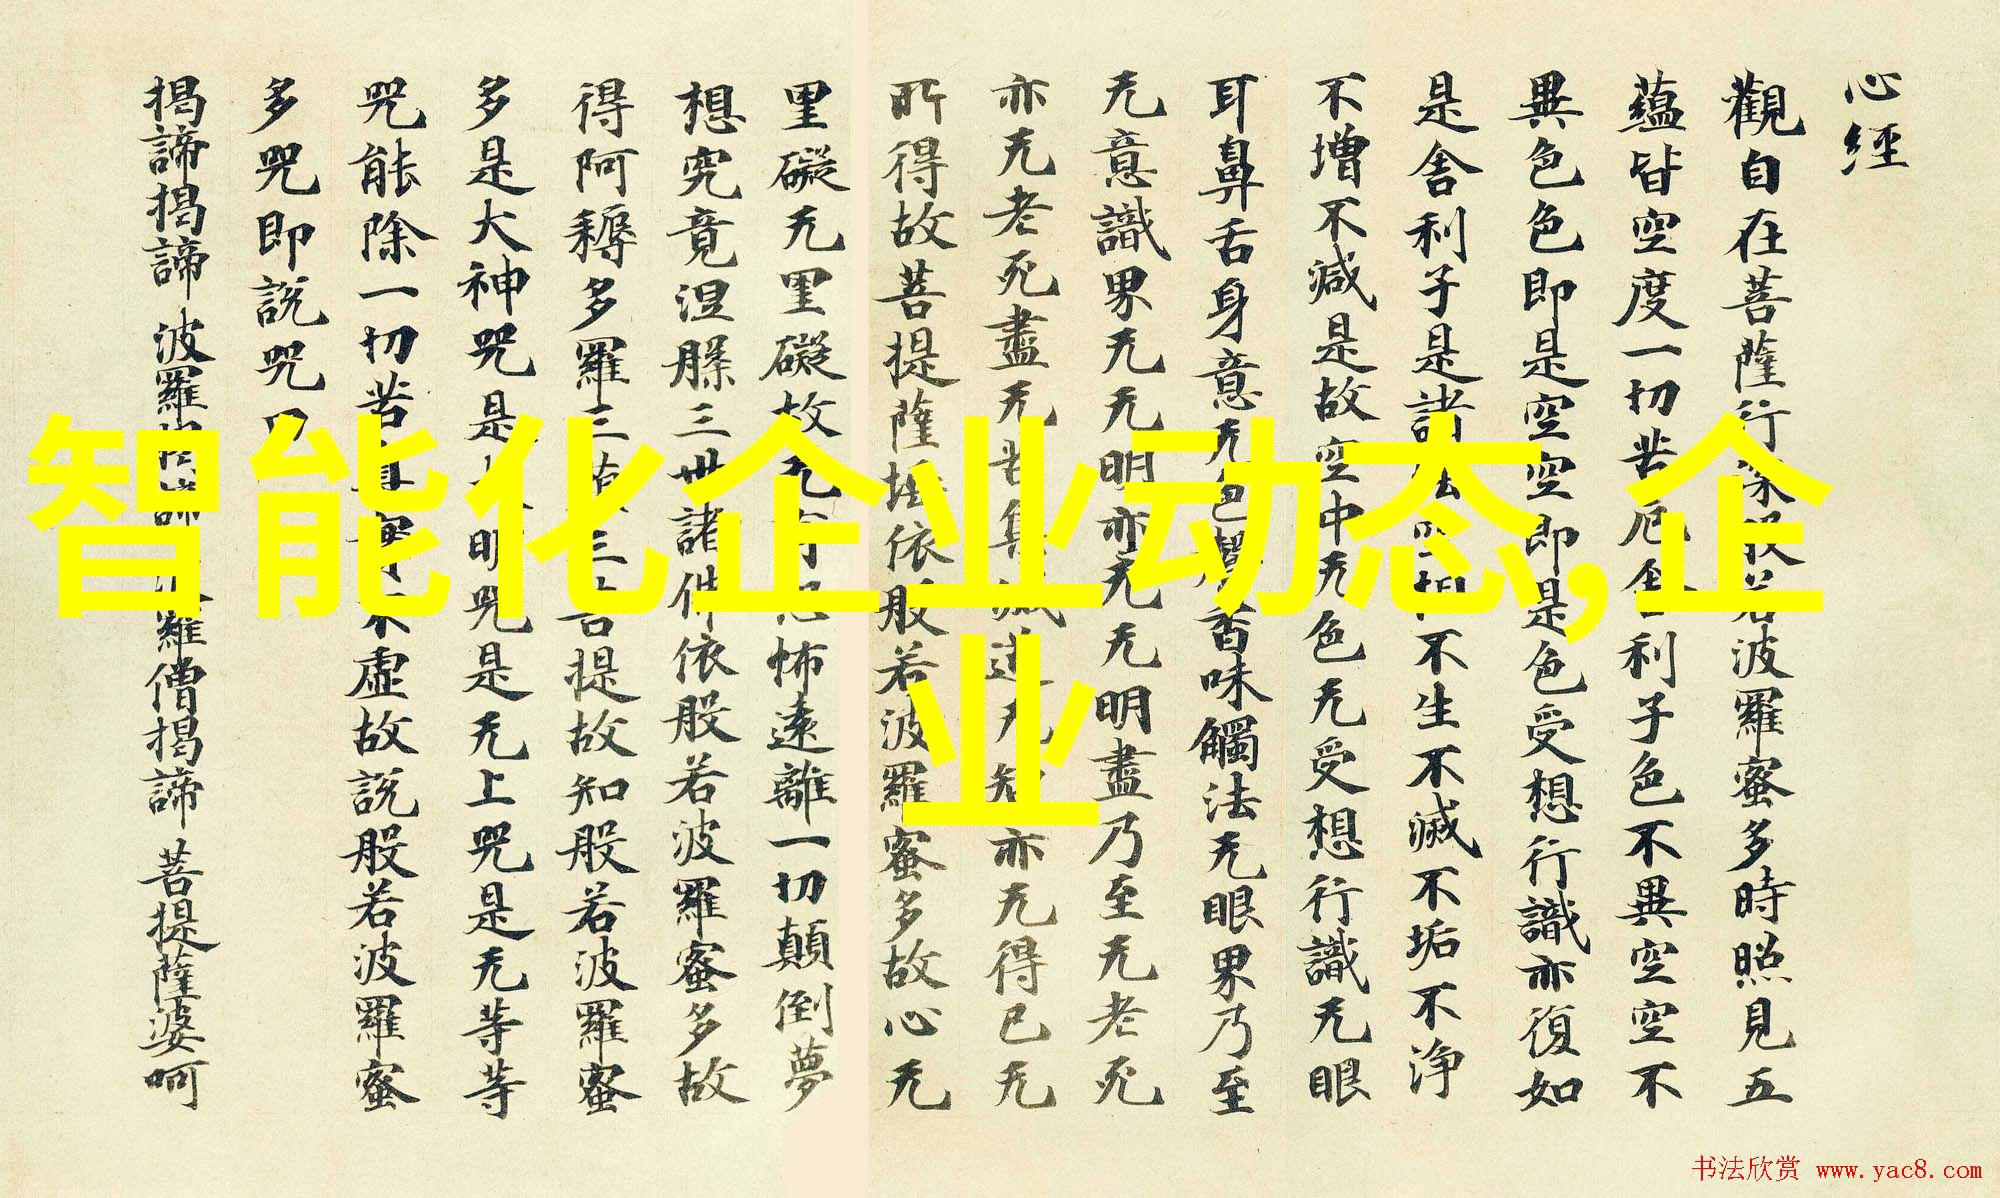 心經
觀自在菩薩行深般若波羅蜜多時照見五
蘊皆空度一切苦厄舍利子色不異空空不
異色色即是空空即是色受想行識亦復如
是舍利子是諸法空相不生不滅不垢不浄
不增不減是故空中无色无受想行識无眼
耳鼻舌身意无色聲香味觸法无眼界乃至
无意識界无无明亦无无明盡乃至无老死
亦无老死盡无苦集滅道无智亦无得已无
所得故菩提薩埵依般若波羅蜜多故心无
罣礙无罣礙故无有恐怖遠離一切顛倒夢
想究竟涅槃三世諸佛依般若波羅蜜多故
得阿耨多羅三藐三菩提故知般若波羅蜜
多是大神咒是大明咒是无上咒是无等等
咒能除一切苦真實不虛故說般若波羅蜜
多咒即說咒曰
揭諦揭諦 波羅揭諦 波羅僧揭諦 菩提薩婆呵
智能化企业动态,企
业
书法欣赏 www.yac8.com